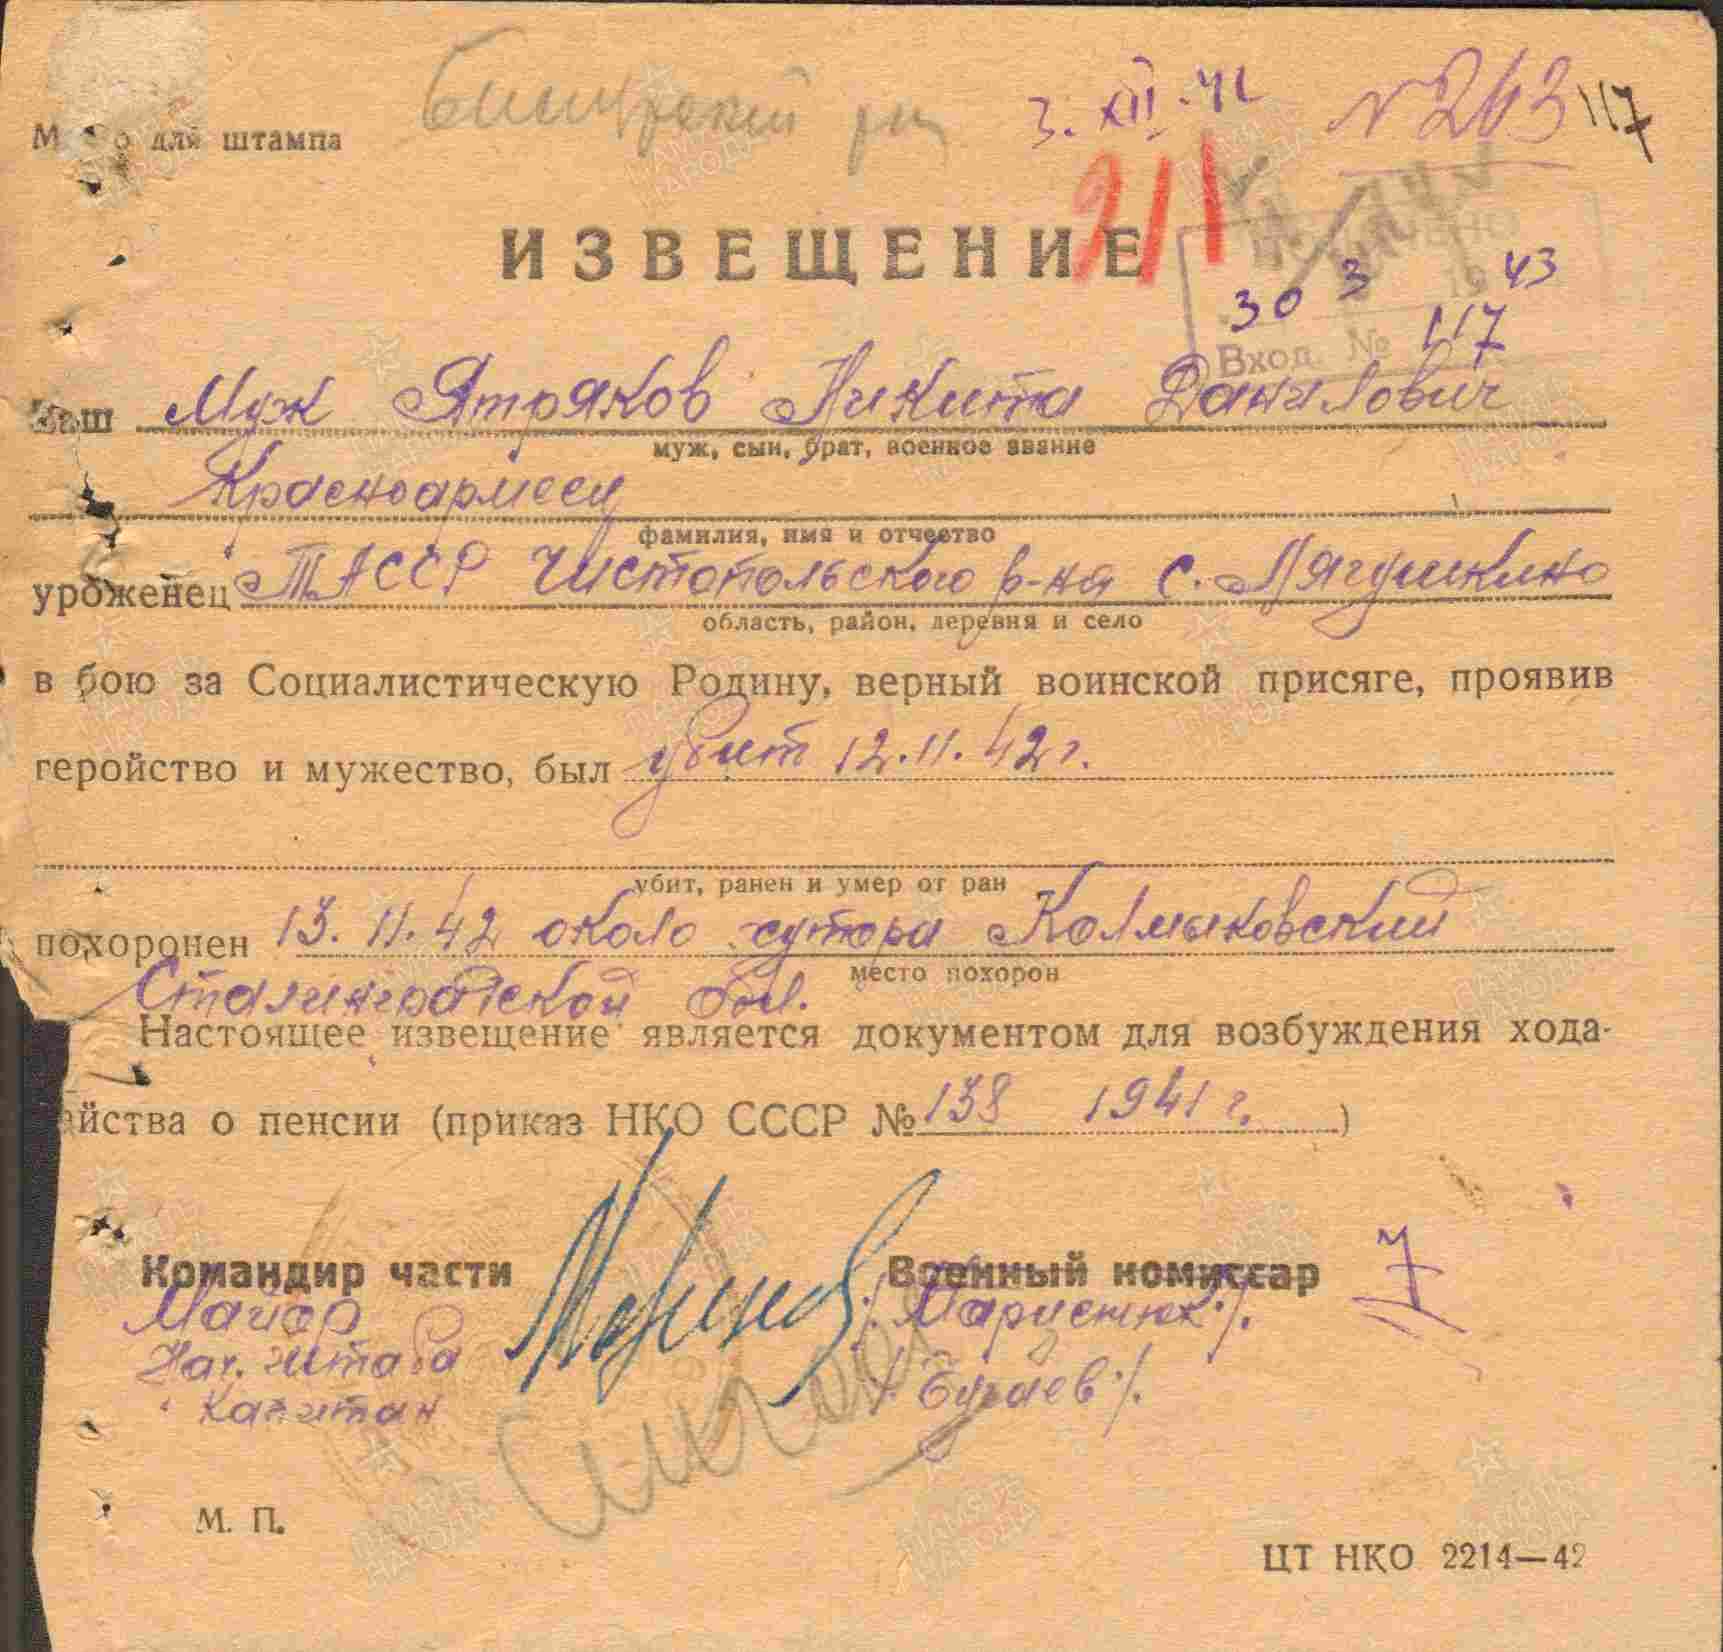 3. XII. 42 №263 117
Место для штампа
211
ИЗВЕЩЕНИЕ
30 3 1943
Вход. № 117
Ваш Муж Ятряков Никита Данилович
муж, сын, брат, военное звание
Красноармеец
фамилия, имя и отчество
уроженец ТАССР Чистопольского р-на с. Лягушкино
область, район, деревня и село
в бою за Социалистическую Родину, верный воинской присяге, проявив
геройство и мужество, был убит 12.11.42г.
убит, ранен и умер от ран
похоронен 13.11.42 около хутора Колмыковский
место похорон
Сталинградской обл.
Настоящее извещение является документом для возбуждения хода-
айства о пенсии (приказ НКО СССР № 138 1941 г.)
Командир части Военный комиссар
Майор
Нач. штаба
Капитан /Бугаев/.
М. П.
ЦТ НКО 2214—42